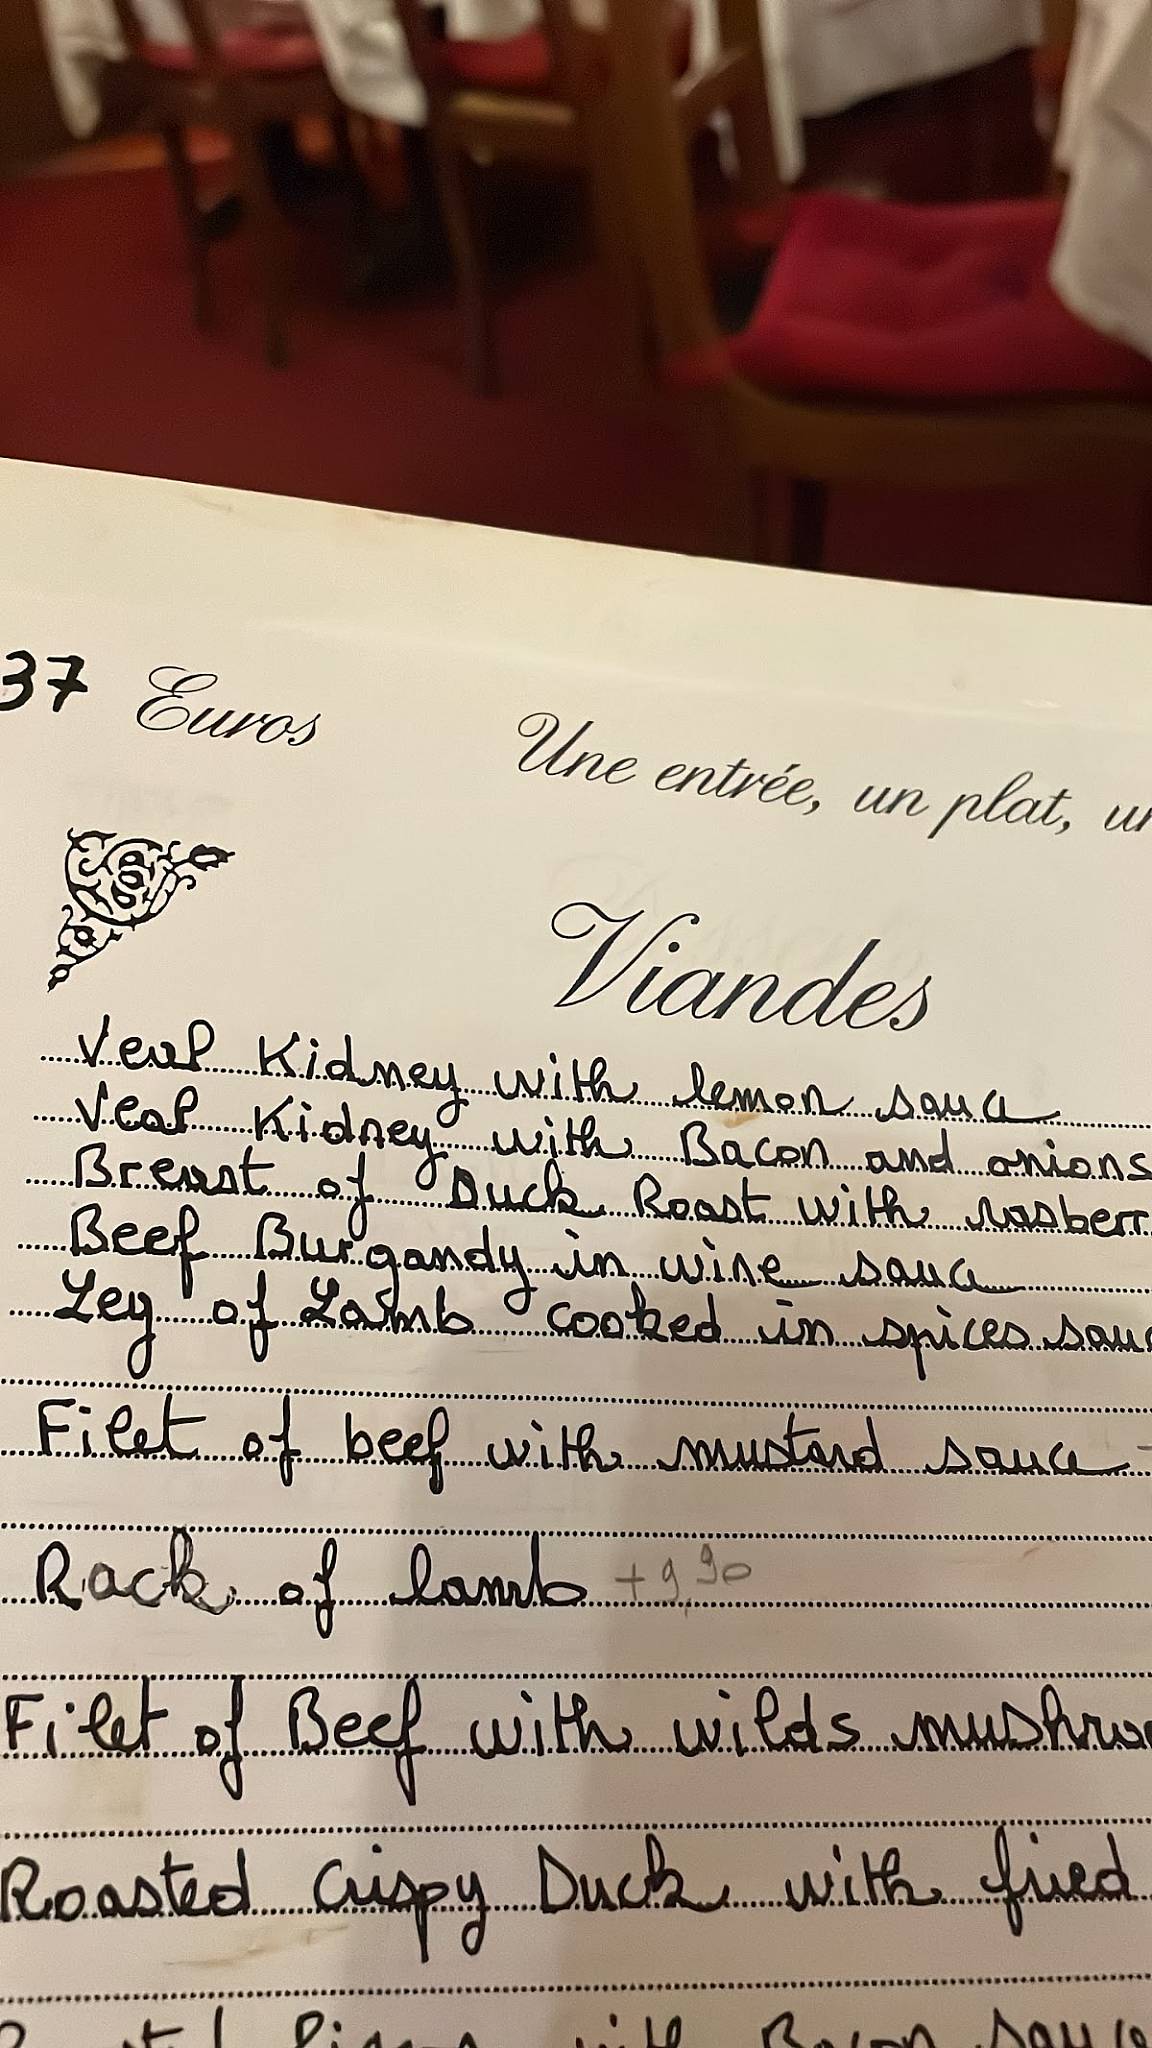 37 Euros Une entrée, un plat, un
Viandes
Veal Kidney with lemon sauce
Veal Kidney with Bacon and onions
Breast of Duck Roast with rasberr
Beef Burgandy in wine sauce
Leg of Lamb cooked in spices sauc
Filet of beef with mustard sauce
Rack of lamb +9,90
Filet of Beef with wilds mushroo
Roasted Crispy Duck with fried
with Bacon sauce